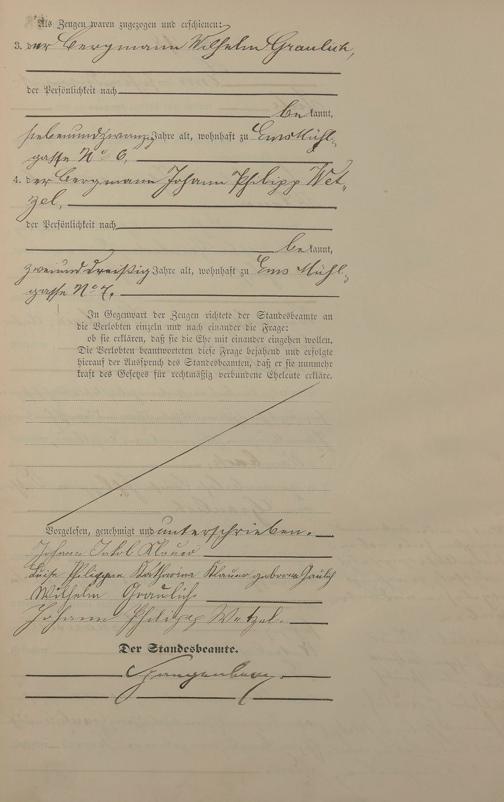 Als Zeugen waren zugezogen und erschienen:
3. der Bergmann Wilhelm Graulich,
der Persönlichkeit nach
bekannt,
siebenundzwanzig Jahre alt, wohnhaft zu Ems Mühl-
gasse No 6,
4. der Bergmann Johann Philipp Wet-
zel,
der Persönlichkeit nach
bekannt,
zweiunddreißig Jahre alt, wohnhaft zu Ems Mühl-
gasse No 7.
In Gegenwart der Zeugen richtete der Standesbeamte an
die Verlobten einzeln und nach einander die Frage:
ob sie erklären, daß sie die Ehe mit einander eingehen wollen.
Die Verlobten beantworteten diese Frage bejahend und erfolgte
hierauf der Ausspruch des Standesbeamten, daß er sie nunmehr
kraft des Gesetzes für rechtmäßig verbundene Eheleute erkläre.
Vorgelesen, genehmigt und unterschrieben.
Johann Jakob Klauer
Luise Philippine Katharina Klauer geborene Graulich
Wilhelm Graulich.
Johann Philipp Wetzel.
Der Standesbeamte.
Spangenberg.